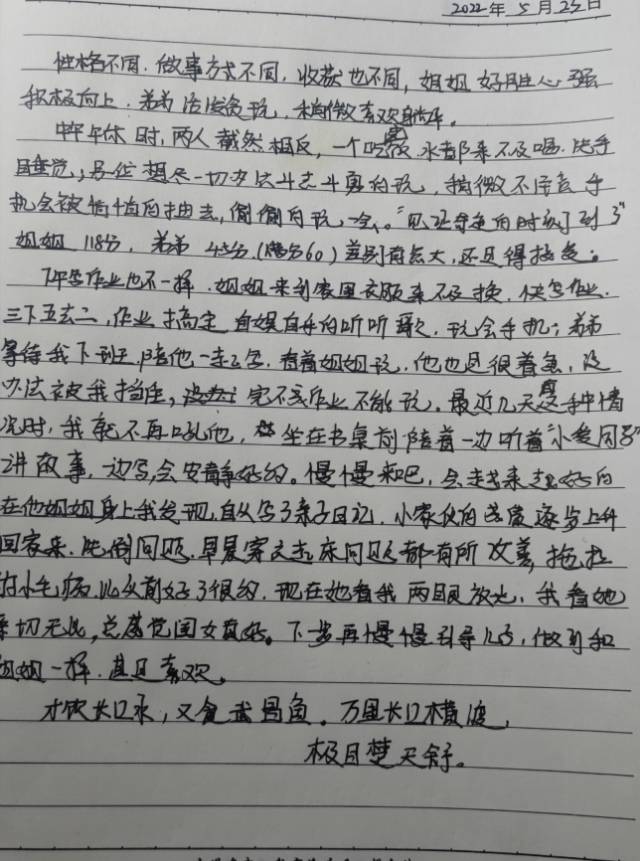 2022年5月25日
性格不同.做事方式不同.收获也不同,姐姐好胜心强
积极向上.弟弟活泼贪玩,稍微喜欢躺平。
中午午休时,两人截然相反,一个吃完饭.水都来不及喝.洗手
睡觉;另一位想尽一切办法斗志斗勇的玩,稍微不注意手
机会被悄悄的抽去,偷偷的玩一会。"见证奇迹的时刻到了"
姐姐118分,弟弟45分(满分60)差别有点大,还是得抽查。
下午写作业也不一样.姐姐来到家里衣服来不及换.快写作业.
三下五去二,作业搞定自娱自乐的听听歌.玩会手机;弟弟
等待我下班,陪他一起写.看着姐姐玩,他也是很着急,没
办法被我挡住,完不成作业不能玩。最近几天遇这种情
况时,我就不再吼他,坐在书桌前陪着一边听着"小爱同学"
讲故事,一边写,会安静好多。慢慢来吧,会越来越好的
在他姐姐身上我发现.自从写了亲子日记.小家伙的速度逐步上升
回家来.洗倒问题.早晨穿衣起床问题都有所改善,拖拉
的小毛病.比以前好了很多.现在她看我两眼放光.我看她
亲切无比,总感觉闺女真好。下步再慢慢引导儿子,做到和
姐姐一样.甚是喜欢。
才饮长江水,又食武昌鱼。万里长江横渡,
极目楚天舒。